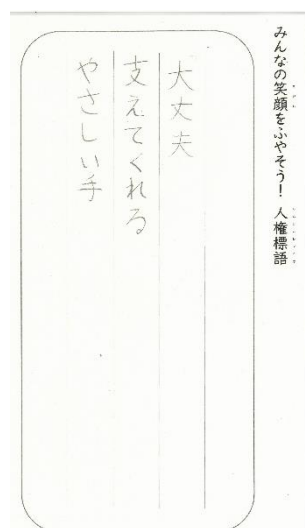 みんなの笑顔をふやそう！ 人権標語
大丈夫
支えてくれる
やさしい手